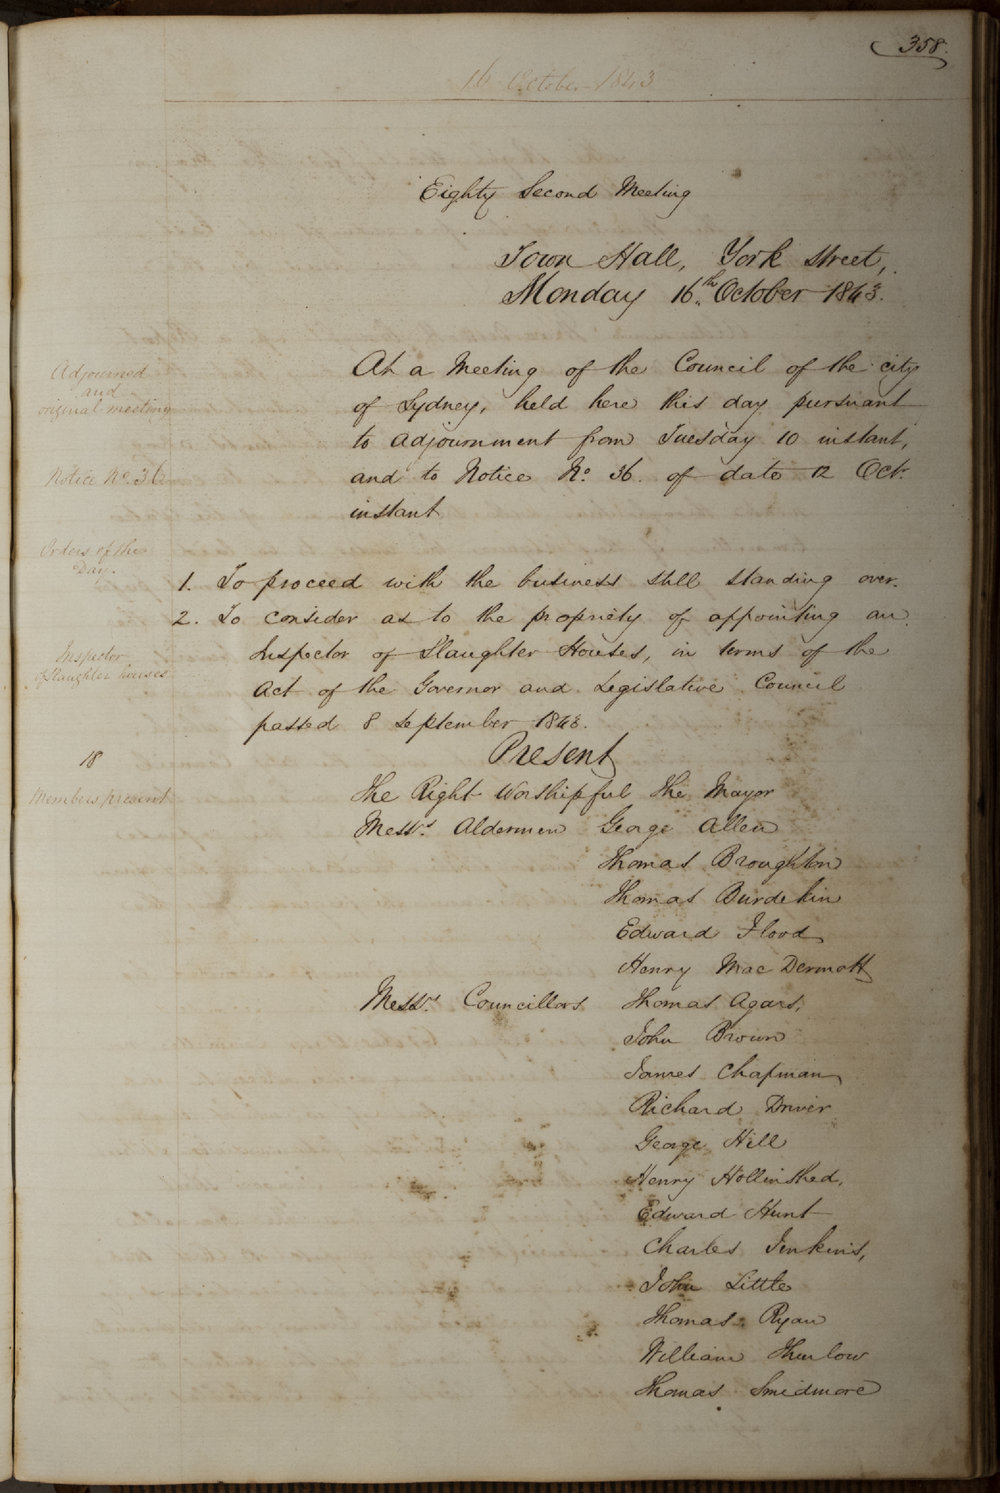 358.
16 October 1843
Eighty Second Meeting
Town Hall, York Street,
Monday 16th October 1843.
Adjourned
and
original meeting
At a Meeting of the Council of the city
of Sydney, held here this day pursuant
to adjournment from Tuesday 10 instant,
Notice No. 36
and to Notice No. 36. of date 12 Oct.
instant
Orders of the
Day.
1. To proceed with the business still standing over.
2. To consider as to the propriety of appointing an
Inspector
of Slaughter houses
Inspector of Slaughter Houses, in terms of the
Act of the Governor and Legislative Council
passed 8 September 1843.
Present
18
Members present
The Right Worshipful The Mayor
Messrs. Aldermen George Allen
Thomas Broughton
Thomas Burdekin
Edward Flood
Henry Mac Dermott
Messrs. Councillors Thomas Agars,
John Brown
James Chapman
Richard Driver
George Hill
Henry Hollinshed,
Edward Hunt
Charles Jenkins,
John Little
Thomas Ryan
William Thurlow
Thomas Smidmore